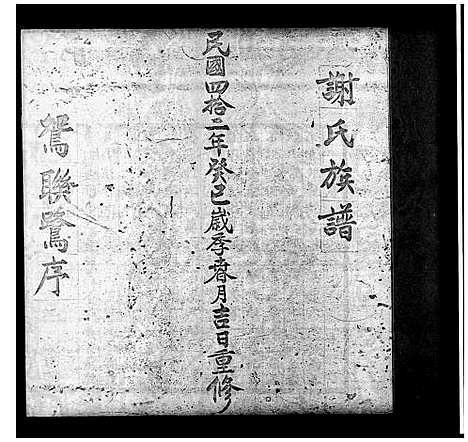 謝氏族譜
民國四拾二年癸巳歲季春月吉日重修
鴛聯鷺序